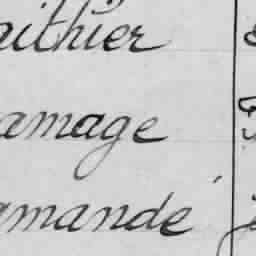 aithier
amage
amandé